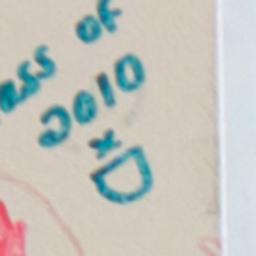 ass of
2010
xD